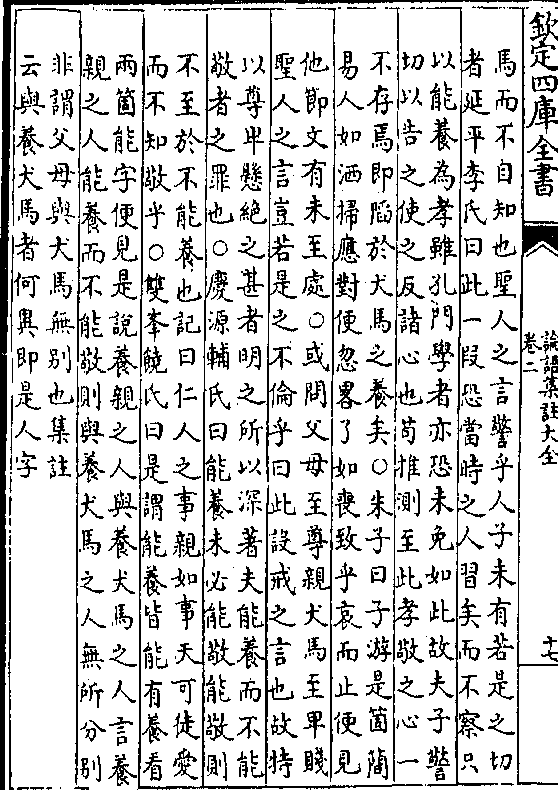 欽定四庫全書
論語集註大全
卷二
十七
馬而不自知也聖人之言警乎人子未有若是之切
者延平李氏曰此一段恐當時之人習矣而不察只
以能養為孝雖孔門學者亦恐未免如此故夫子警
切以告之使之反諸心也苟推測至此孝敬之心一
不存焉即蹈於犬馬之養矣○朱子曰子游是箇簡
易人如洒掃應對便忽畧了如喪致乎哀而止便見
他節文有未至處○或問父母至尊親犬馬至卑賤
聖人之言豈若是之不倫乎曰此設戒之言也故特
以尊卑懸絶之甚者明之所以深著夫能養而不能
敬者之罪也○慶源輔氏曰能養未必能敬能敬則
不至於不能養也記曰仁人之事親如事天可徒愛
而不知敬乎○雙峯饒氏曰是謂能養皆能有養看
兩箇能字便見是說養親之人與養犬馬之人言養
親之人能養而不能敬則與養犬馬之人無所分别
非謂父母與犬馬無别也集註
云與養犬馬者何異即是人字